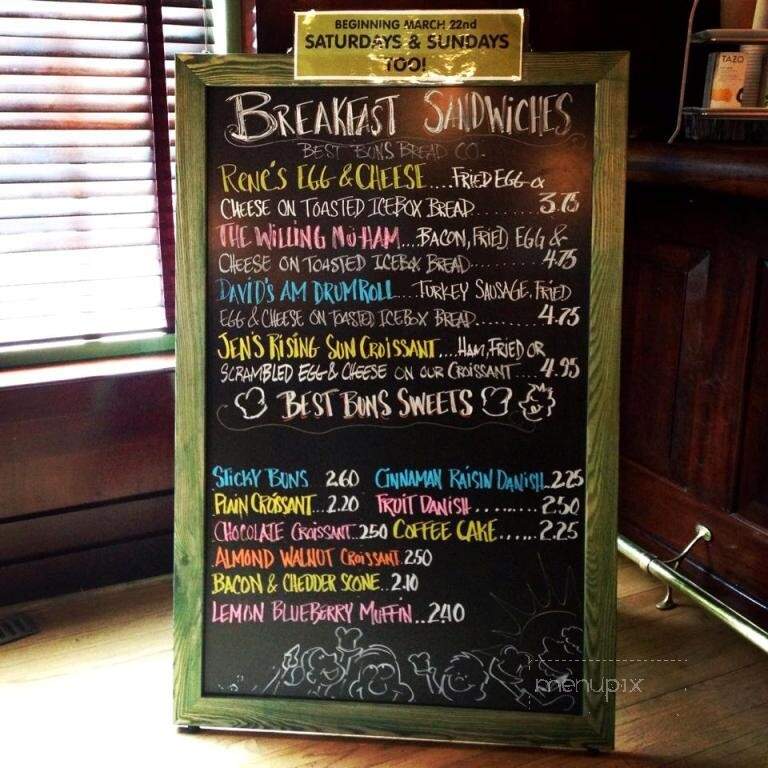 BEGINNING MARCH 22nd
SATURDAYS & SUNDAYS
TOO!
TAZO
BREAKFAST SANDWICHES
BEST BUNS BREAD CO.
RENE'S EGG & CHEESE....FRIED EGG &
CHEESE ON TOASTED ICEBOX BREAD........3.75
THE WILLING MU-HAM....BACON, FRIED EGG &
CHEESE ON TOASTED ICEBOX BREAD........4.75
DAVID'S AM DRUMROLL....TURKEY SAUSAGE, FRIED
EGG & CHEESE ON TOASTED ICEBOX BREAD........4.75
JEN'S RISING SUN CROISSANT....HAM, FRIED OR
SCRAMBLED EGG & CHEESE ON OUR CROISSANT....4.95
BEST BUNS SWEETS
STICKY BUNS 2.60 CINNAMAN RAISIN DANISH..2.25
PLAIN CROISSANT...2.20 FRUIT DANISH.........2.50
CHOCOLATE CROISSANT.2.50 COFFEE CAKE......2.25
ALMOND WALNUT CROISSANT.2.50
BACON & CHEDDER SCONE..2.10
LEMON BLUEBERRY MUFFIN..2.40
menupix